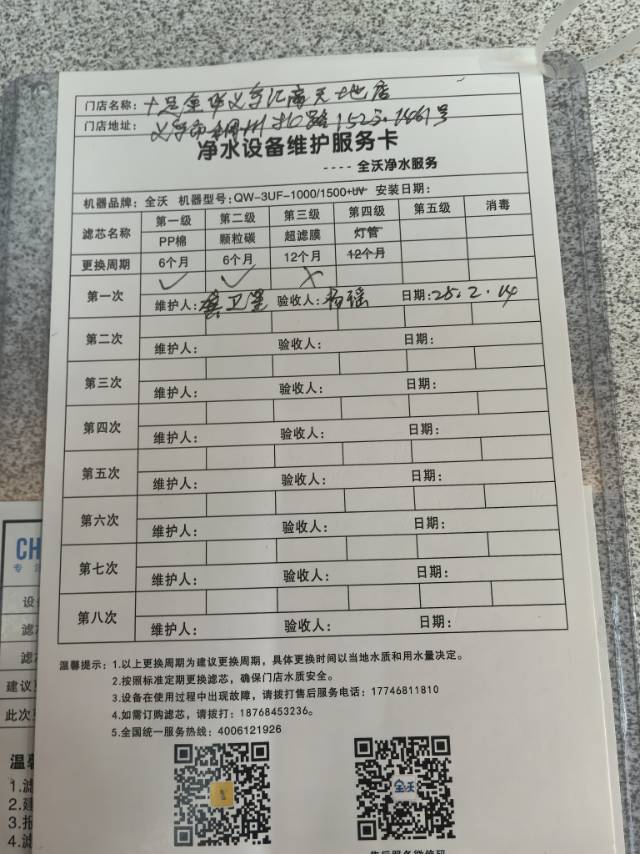 门店名称：十足金华义乌汇商天地店
门店地址：义乌市稠州北路1523.1461号
净水设备维护服务卡
----全沃净水服务
机器品牌：全沃 机器型号：QW-3UF-1000/1500+UV 安装日期：
滤芯名称 第一级 第二级 第三级 第四级 第五级 消毒
PP棉 颗粒碳 超滤膜 灯管
更换周期 6个月 6个月 12个月 12个月
第一次 ✓ ✓ ✗
维护人： 卫星 验收人：杨瑶 日期：25.2.14
第二次
维护人： 验收人： 日期：
第三次
维护人： 验收人： 日期：
第四次
维护人： 验收人： 日期：
第五次
维护人： 验收人： 日期：
第六次
维护人： 验收人： 日期：
第七次
维护人： 验收人： 日期：
第八次
维护人： 验收人： 日期：
温馨提示：1.以上更换周期为建议更换周期，具体更换时间以当地水质和用水量决定。
2.按照标准定期更换滤芯，确保门店水质安全。
3.设备在使用过程中出现故障，请拨打售后服务电话：17746811810
4.如需订购滤芯，请拨打：18768453236。
5.全国统一服务热线：4006121926
全沃
售后服务微信码
CH
专
设
滤
滤
建议
此次
温
1.滤
2.建
3.报
4.滤